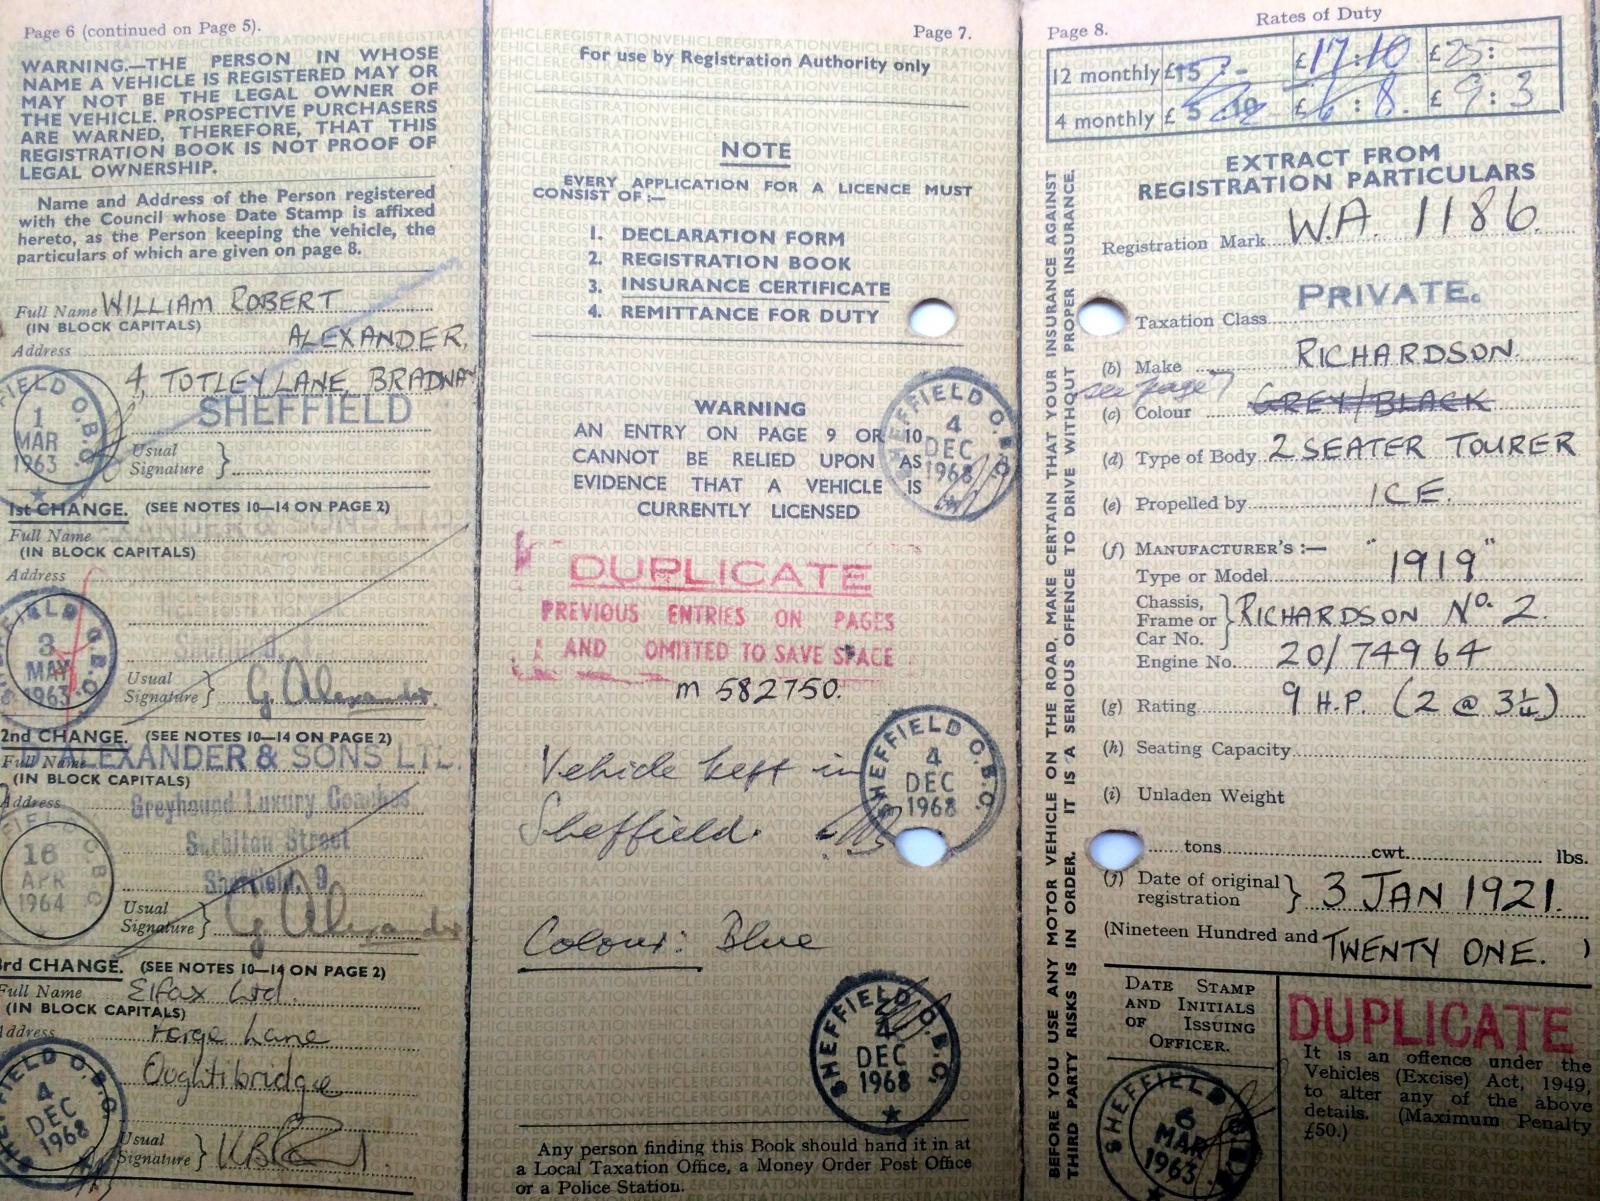 Page 6 (continued on Page 5).
WARNING.—THE PERSON IN WHOSE
NAME A VEHICLE IS REGISTERED MAY OR
MAY NOT BE THE LEGAL OWNER OF
THE VEHICLE. PROSPECTIVE PURCHASERS
ARE WARNED, THEREFORE, THAT THIS
REGISTRATION BOOK IS NOT PROOF OF
LEGAL OWNERSHIP.
Name and Address of the Person registered
with the Council whose Date Stamp is affixed
hereto, as the Person keeping the vehicle, the
particulars of which are given on page 8.
Full Name WILLIAM ROBERT
(IN BLOCK CAPITALS)
ALEXANDER,
Address
4, TOTLEY LANE BRADWAY
SHEFFIELD
SHEFFIELD O.B.C.
1
MAR
1963
Usual
Signature }
1st CHANGE. (SEE NOTES 10—14 ON PAGE 2)
Full Name
(IN BLOCK CAPITALS)
Address
SHEFFIELD O.B.C.
3
MAY
1963
Usual
Signature } G. Alexander.
2nd CHANGE. (SEE NOTES 10—14 ON PAGE 2)
Full Name ALEXANDER & SONS LTD.
(IN BLOCK CAPITALS)
Address Greyhound Luxury Coaches
Surbiton Street
Sheffield, 9
16
APR
1964
Usual
Signature } G. Alexander
3rd CHANGE. (SEE NOTES 10—14 ON PAGE 2)
Full Name Elfax Ltd.
(IN BLOCK CAPITALS)
Address Forge Lane
Oughtibridge
SHEFFIELD O.B.C.
4
DEC
1968
Usual
Signature }
Page 7.
For use by Registration Authority only
NOTE
EVERY APPLICATION FOR A LICENCE MUST
CONSIST OF :—
1. DECLARATION FORM
2. REGISTRATION BOOK
3. INSURANCE CERTIFICATE
4. REMITTANCE FOR DUTY
WARNING
AN ENTRY ON PAGE 9 OR 10
CANNOT BE RELIED UPON AS
EVIDENCE THAT A VEHICLE IS
CURRENTLY LICENSED
SHEFFIELD O.B.C.
4
DEC
1968
DUPLICATE
PREVIOUS ENTRIES ON PAGES
AND OMITTED TO SAVE SPACE
m 582750.
Vehicle kept in
Sheffield.
SHEFFIELD O.B.C.
4
DEC
1968
Colour: Blue
SHEFFIELD O.B.C.
4
DEC
1968
Any person finding this Book should hand it in at
a Local Taxation Office, a Money Order Post Office
or a Police Station.
BEFORE YOU USE ANY MOTOR VEHICLE ON THE ROAD, MAKE CERTAIN THAT YOUR INSURANCE AGAINST
THIRD PARTY RISKS IS IN ORDER. IT IS A SERIOUS OFFENCE TO DRIVE WITHOUT PROPER INSURANCE.
Page 8.
Rates of Duty
12 monthly £15 : - £17:10 £25: —
4 monthly £ 5 £6 : 8. £ 9 : 3
EXTRACT FROM
REGISTRATION PARTICULARS
Registration Mark W.A. 1186.
PRIVATE.
Taxation Class
(b) Make RICHARDSON.
see page 7
(c) Colour GREY/BLACK
(d) Type of Body 2 SEATER TOURER
(e) Propelled by ICE.
(f) MANUFACTURER'S :—
Type or Model "1919"
Chassis,
Frame or
Car No. } RICHARDSON No. 2.
Engine No. 20/74964
(g) Rating 9 H.P. (2 @ 3¼)
(h) Seating Capacity
(i) Unladen Weight
tons cwt. lbs.
(j) Date of original
registration } 3 JAN 1921.
(Nineteen Hundred and TWENTY ONE. )
DATE STAMP
AND INITIALS
OF ISSUING
OFFICER.
SHEFFIELD
6
MAR
1963
DUPLICATE
It is an offence under the
Vehicles (Excise) Act, 1949,
to alter any of the above
details. (Maximum Penalty
£50.)